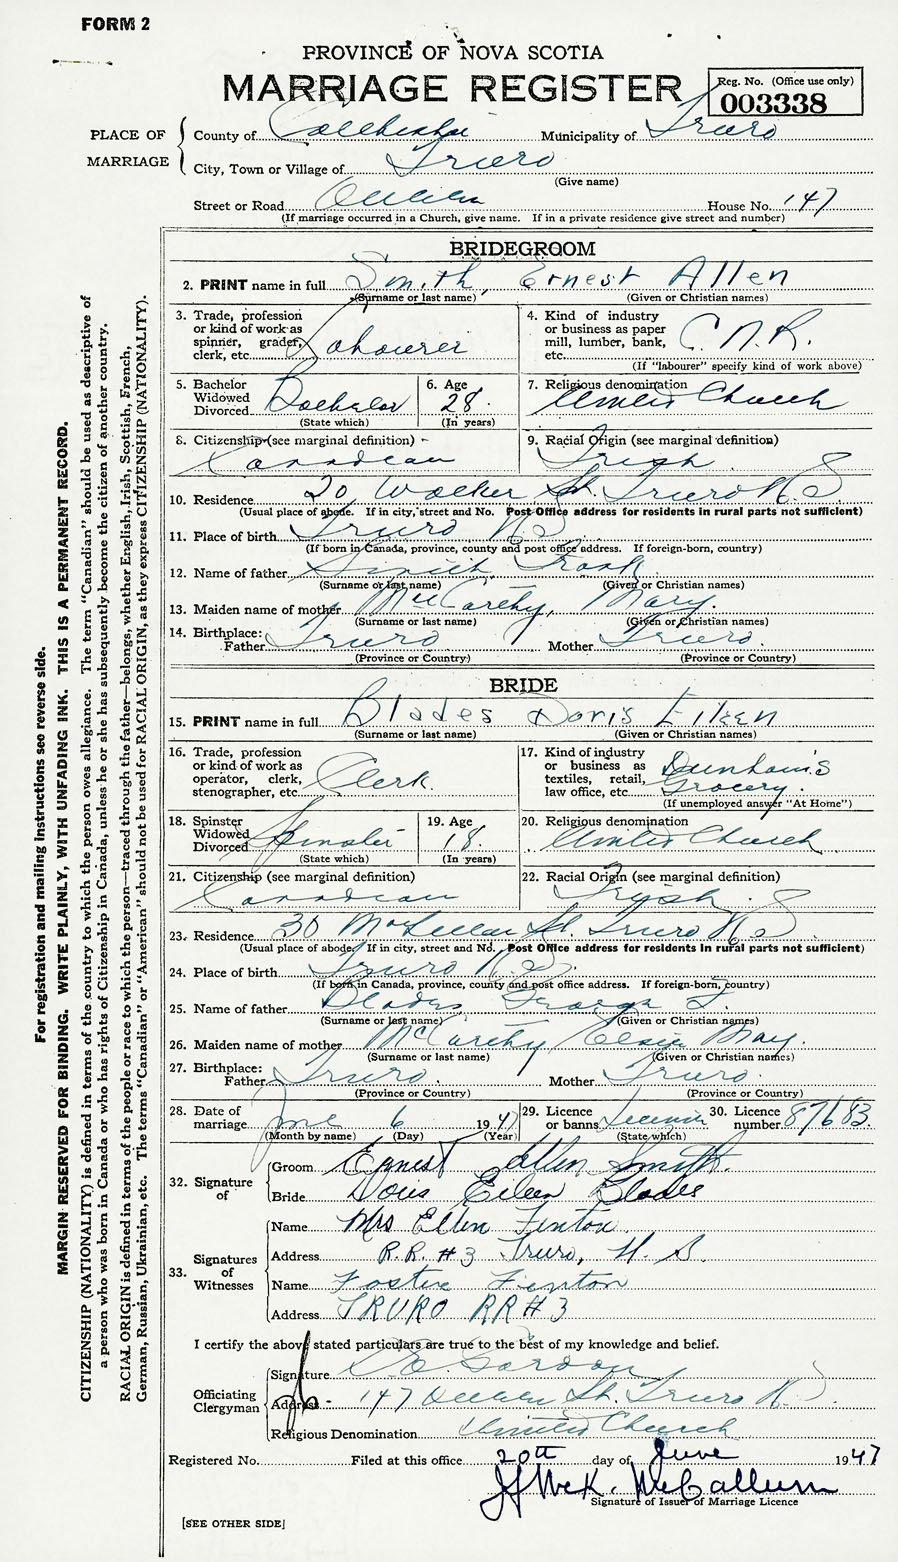 FORM 2
PROVINCE OF NOVA SCOTIA
MARRIAGE REGISTER
Reg. No. (Office use only)
003338
PLACE OF MARRIAGE
County of Colchester Municipality of Truro
City, Town or Village of Truro
(Give name)
Street or Road Queen House No. 147
(If marriage occurred in a Church, give name. If in a private residence give street and number)
BRIDEGROOM
2. PRINT name in full Smith, Ernest Allen
(Surname or last name) (Given or Christian names)
3. Trade, profession or kind of work as spinner, grader, clerk, etc. Labourer
4. Kind of industry or business as paper mill, lumber, bank, etc. C.N.R.
(If "labourer" specify kind of work above)
5. Bachelor Widowed Divorced Bachelor
(State which)
6. Age 28
(In years)
7. Religious denomination United Church
8. Citizenship (see marginal definition) Canadian
9. Racial Origin (see marginal definition) Irish
10. Residence 20 Walker St. Truro N.S
(Usual place of abode. If in city, street and No. Post Office address for residents in rural parts not sufficient)
11. Place of birth Truro N.S
(If born in Canada, province, county and post office address. If foreign-born, country)
12. Name of father Smith Frank
(Surname or last name) (Given or Christian names)
13. Maiden name of mother McCarthy, Mary.
(Surname or last name) (Given or Christian names)
14. Birthplace: Father Truro Mother Truro.
(Province or Country) (Province or Country)
BRIDE
15. PRINT name in full Blades Doris Eileen
(Surname or last name) (Given or Christian names)
16. Trade, profession or kind of work as operator, clerk, stenographer, etc. Clerk.
17. Kind of industry or business as textiles, retail, law office, etc. Dunham's Grocery.
(If unemployed answer "At Home")
18. Spinster Widowed Divorced Spinster
(State which)
19. Age 18.
(In years)
20. Religious denomination United Church
21. Citizenship (see marginal definition) Canadian
22. Racial Origin (see marginal definition) Irish
23. Residence 30 McLellan St. Truro N.S
(Usual place of abode. If in city, street and No. Post Office address for residents in rural parts not sufficient)
24. Place of birth Truro N.S.
(If born in Canada, province, county and post office address. If foreign-born, country)
25. Name of father Blades George
(Surname or last name) (Given or Christian names)
26. Maiden name of mother McCarthy Elsie May.
(Surname or last name) (Given or Christian names)
27. Birthplace: Father Truro. Mother Truro.
(Province or Country) (Province or Country)
28. Date of marriage June 6 1947
(Month by name) (Day) (Year)
29. Licence or banns Licence
(State which)
30. Licence number. 87683.
32. Signature of
Groom Ernest Allen Smith.
Bride Doris Eileen Blades
33. Signatures of Witnesses
Name Mrs Ellen Fenton
Address R.R. #3 Truro, N. S
Name Foster Fenton
Address TRURO RR#3
I certify the above stated particulars are true to the best of my knowledge and belief.
Officiating Clergyman
Signature Gordon
Address 147 Queen St. Truro N.S
Religious Denomination United Church
Registered No. Filed at this office 20th day of June 1947
McCallum
Signature of Issuer of Marriage Licence
[SEE OTHER SIDE]
For registration and mailing instructions see reverse side.
MARGIN RESERVED FOR BINDING. WRITE PLAINLY, WITH UNFADING INK. THIS IS A PERMANENT RECORD.
CITIZENSHIP (NATIONALITY) is defined in terms of the country to which the person owes allegiance. The term "Canadian" should be used as descriptive of
a person who was born in Canada or who has rights of Citizenship in Canada, unless he or she has subsequently become the citizen of another country.
RACIAL ORIGIN is defined in terms of the people or race to which the person—traced through the father—belongs, whether English, Irish, Scottish, French,
German, Russian, Ukrainian, etc. The terms "Canadian" or "American" should not be used for RACIAL ORIGIN, as they express CITIZENSHIP (NATIONALITY).